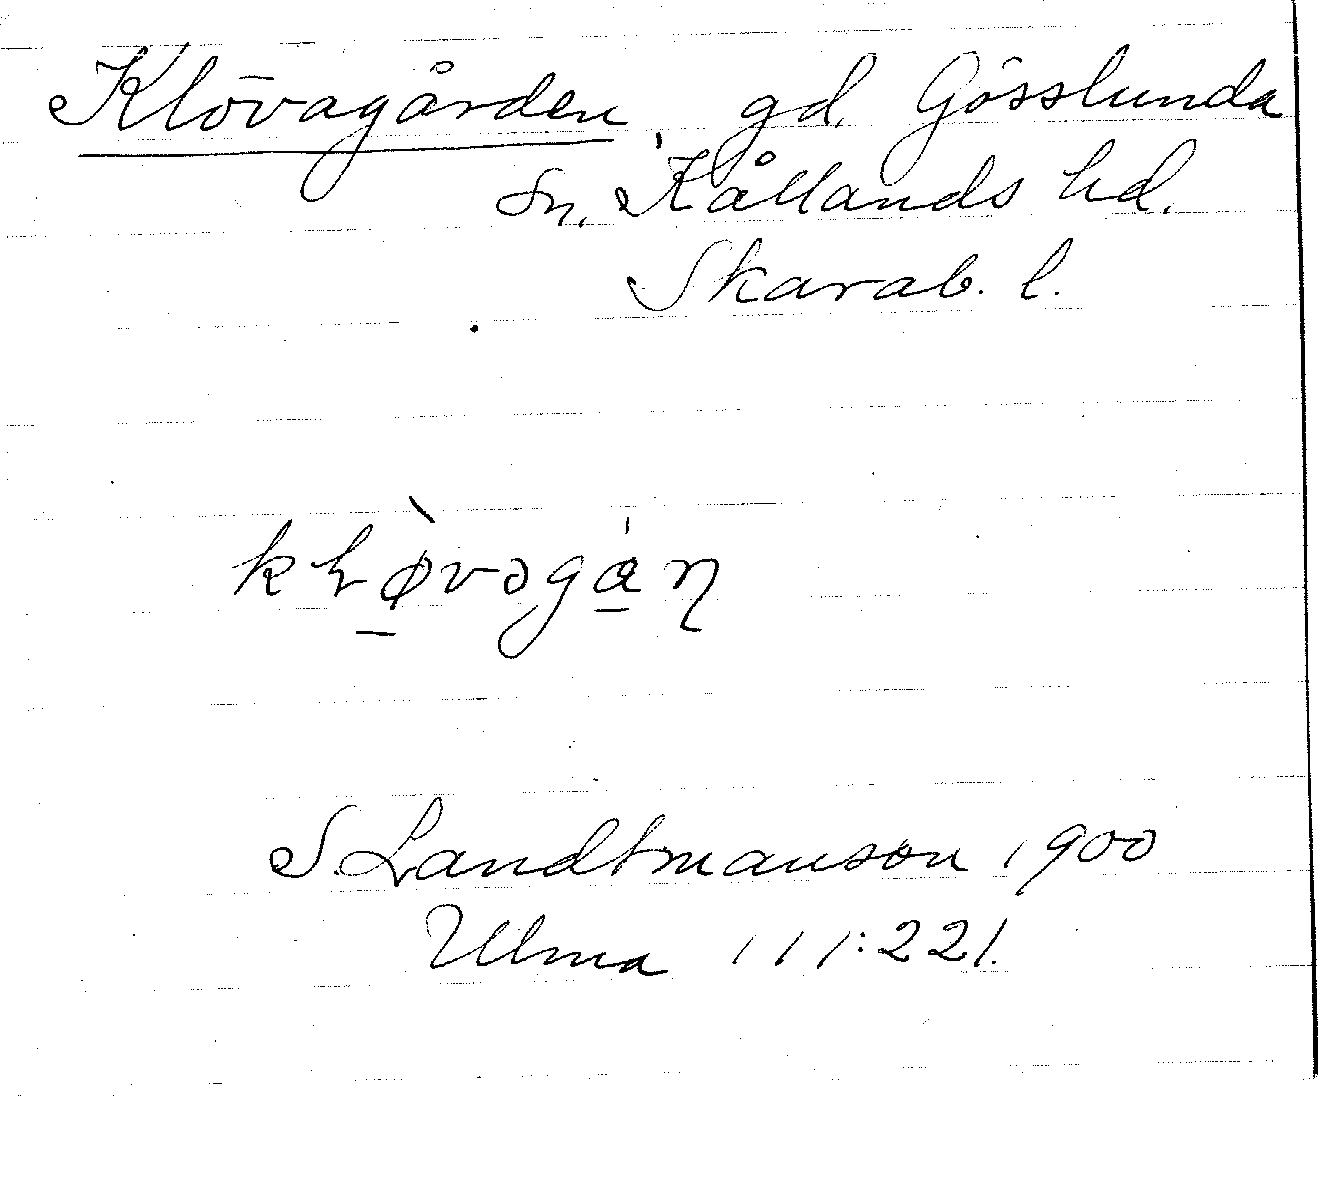 Klövagården, gd. Gösslunda
sn. Kållands hd.
Skarab. l.
kƚø̠̀vəga̠̍ɳ
S. Landtmanson 1900
Ulma 111:221.